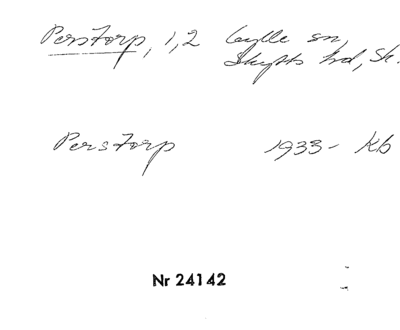 Perstorp, 1,2 Gylle sn,
Skytts hd, Sk.
Perstorp 1933- Kb
Nr 24142